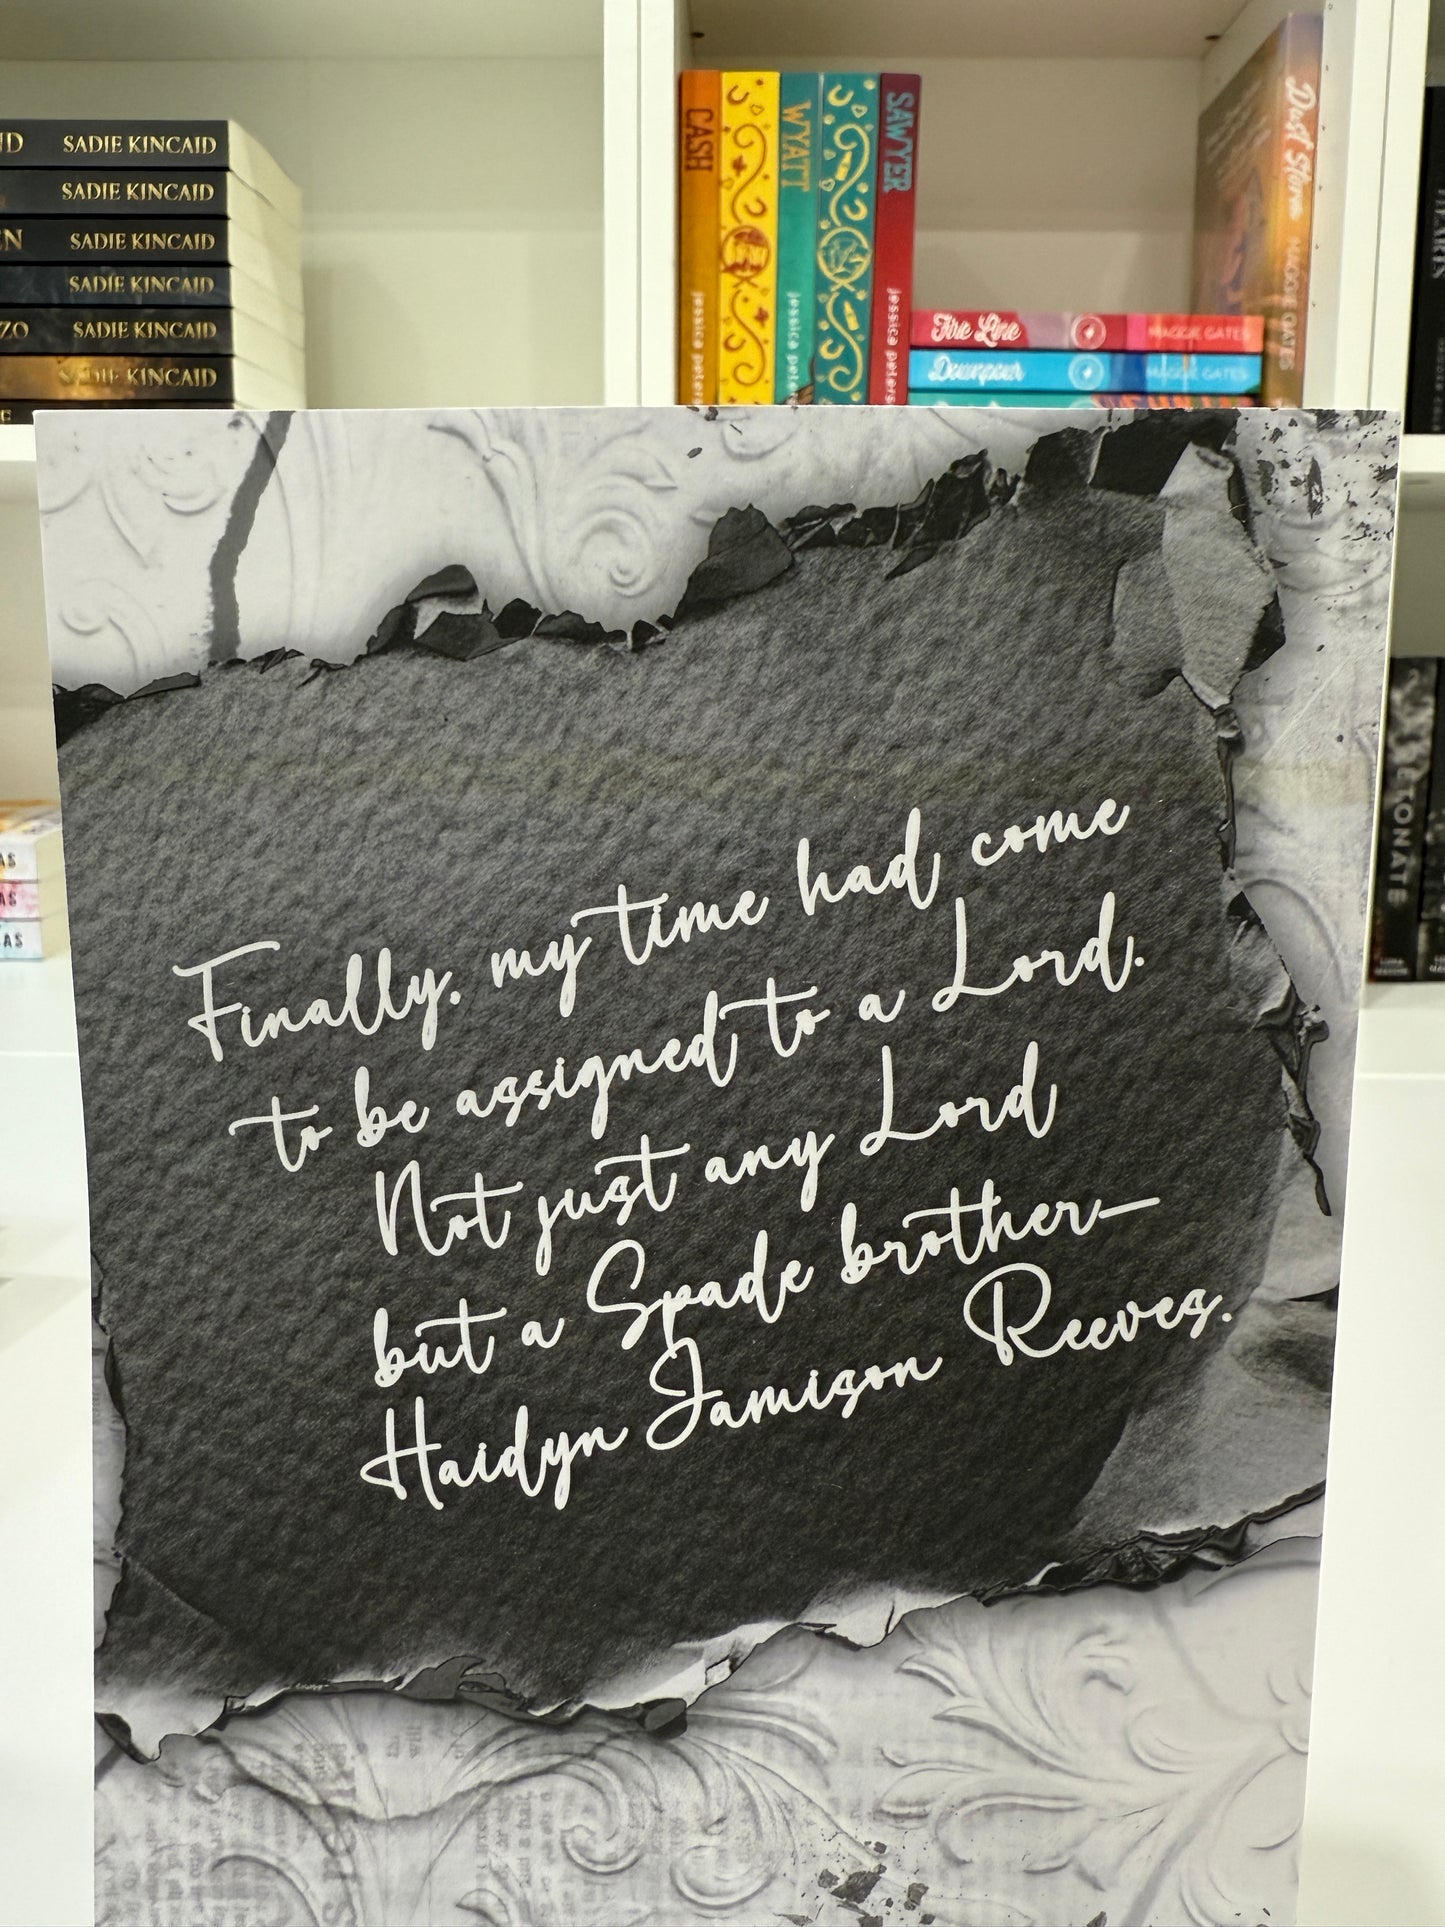 SADIE KINCAID
SADIE KINCAID
SADIE KINCAID
SADIE KINCAID
ZO SADIE KINCAID
SADIE KINCAID
CASH
jessica peters
WYATT
SAWYER
jessica peters
Fire Line MAGGIE GATES
Downpour MAGGIE GATES
Dust Storm MAGGIE GATES
Finally, my time had come
to be assigned to a Lord.
Not just any Lord
but a Spade brother—
Haidyn Jamison Reeves.
AS
AS
AS